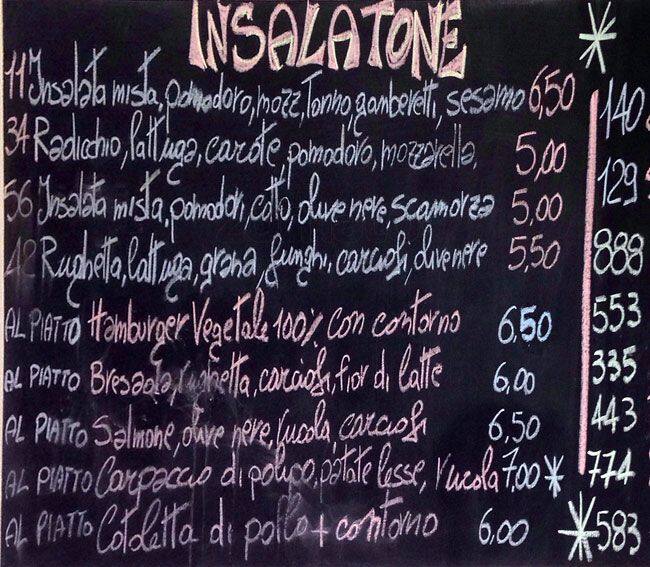 INSALATONE *
11 Insalata mista, pomodoro, mozz, Tonno, gamberetti, sesamo 6,50 140
34 Radicchio, lattuga, carote, pomodoro, mozzarella, 5,00 129
56 Insalata mista, pomodori, cotto, olive nere, scamorza 5,00
42 Rughetta, lattuga, grana, funghi, carciofi, olive nere 5,50 888
AL PIATTO Hamburger Vegetale 100% con contorno 6,50 553
AL PIATTO Bresaola, rughetta, carciofi, fior di latte 6,00 335
AL PIATTO Salmone, olive nere, rucola, carciofi 6,50 443
AL PIATTO Carpaccio di polipo, patate lesse, rucola 7,00 * 774
AL PIATTO Cotoletta di pollo + contorno 6,00 * 583